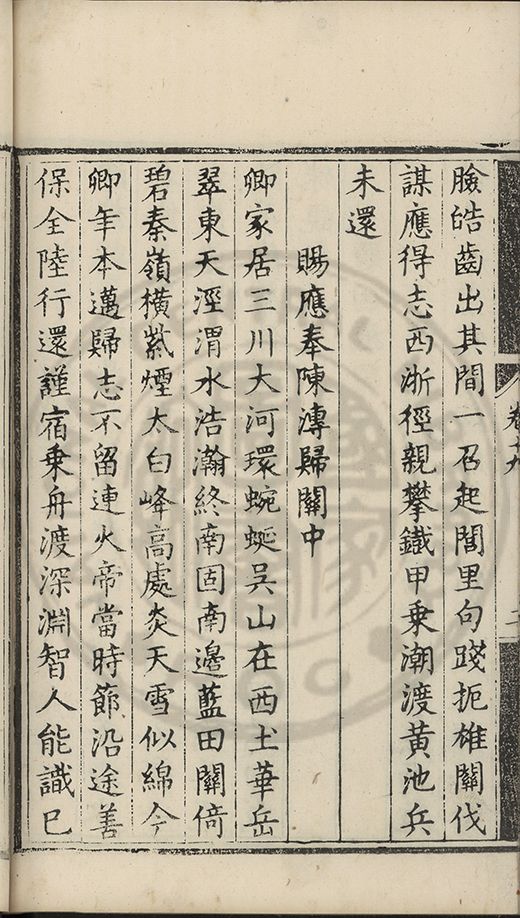 臉皓齒出其間一召起閭里句踐扼雄關伐
謀應得志西浙徑親攀鐵甲乗潮渡黃池兵
未還
賜應奉陳漙歸關中
卿家居三川大河環蜿蜒吳山在西土華岳
翠東天涇渭水浩瀚終南固南邊藍田關倚
碧秦嶺橫紫煙太白峰高處炎天雪似綿今
卿年本邁歸志不留連火帝當時節沿途善
保全陸行還謹宿乗舟渡深淵智人能識巳